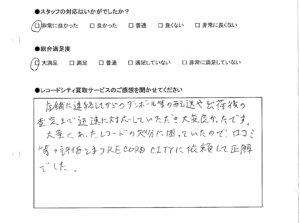 ●スタッフの対応はいかがでしたか？
□非常に良かった □良かった □普通 □良くない □非常に良くない
●総合満足度
□大満足 □満足 □普通 □満足していない □非常に満足していない
●レコードシティ買取サービスのご感想を聞かせてください
店舗に連絡してからのダンボール等の配送や出荷後の
査定まで迅速に対応していただき大変良かったです。
大量にあったレコードの処分に困っていたので、口コミ
等の評価より RECORD CITYに依頼して正解
でした。